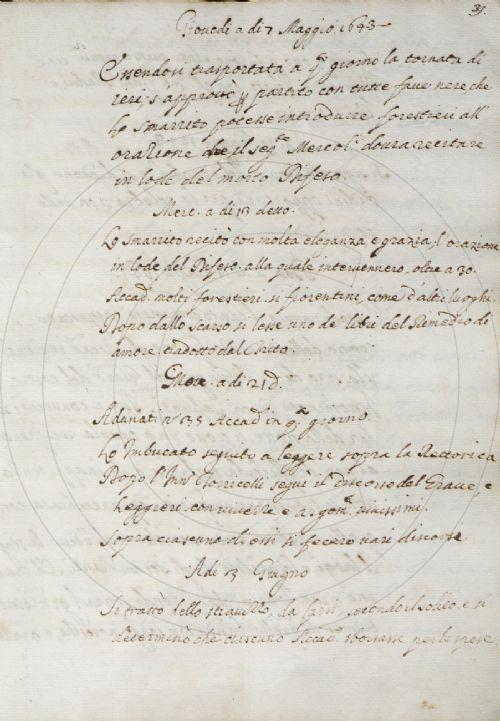 39.
Giovedi a di 7 Maggio 1643
Essendosi trasportata a qto giorno la tornata di
ieri s'approvò p partito con tutte fave nere, che
lo Smarrito potesse introdurre forestieri all'
orazione che il segte Mercol. dovrà recitare
in lode del motto
Merc. a di 13 detto.
Lo Smarrito recitò con molta eleganza, e grazia, l'orazione
in lode del alla quale intervennero, oltre a 30.
Accadi molti forestieri, si fiorentini, come d'altri luoghi.
Dopo dallo Scarso si lesse uno de' libri del Rimedio di
amore tradotto dal
a di 21 d.
Adunati nro 35 Accadi in qto giorno.
Lo Imbucato seguitò a leggere sopra la Rettorica
Dopo l' Torricelli seguì il discorso del Grave, e
Leggieri, con vivezze e argomti
Sopra ciascuno di essi si fecero vari discorsi
A di 13 Giugno
Si trattò dello stravizzo, da farsi, secondo il solito, e si
determinò che ciascuno Accad. sborsasse per le spese